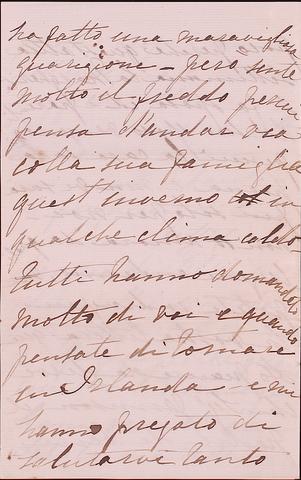 ha fatto una maravigliosa
guarigione – però sente
molto il freddo perciò
pensa d'andar via
colla sua famiglia
quest' inverno in
qualche clima caldo
Tutti hanno domandato
molto di voi e quando
pensate di tornare
in Irlanda – e mi
hanno pregato di
salutarvi tanto